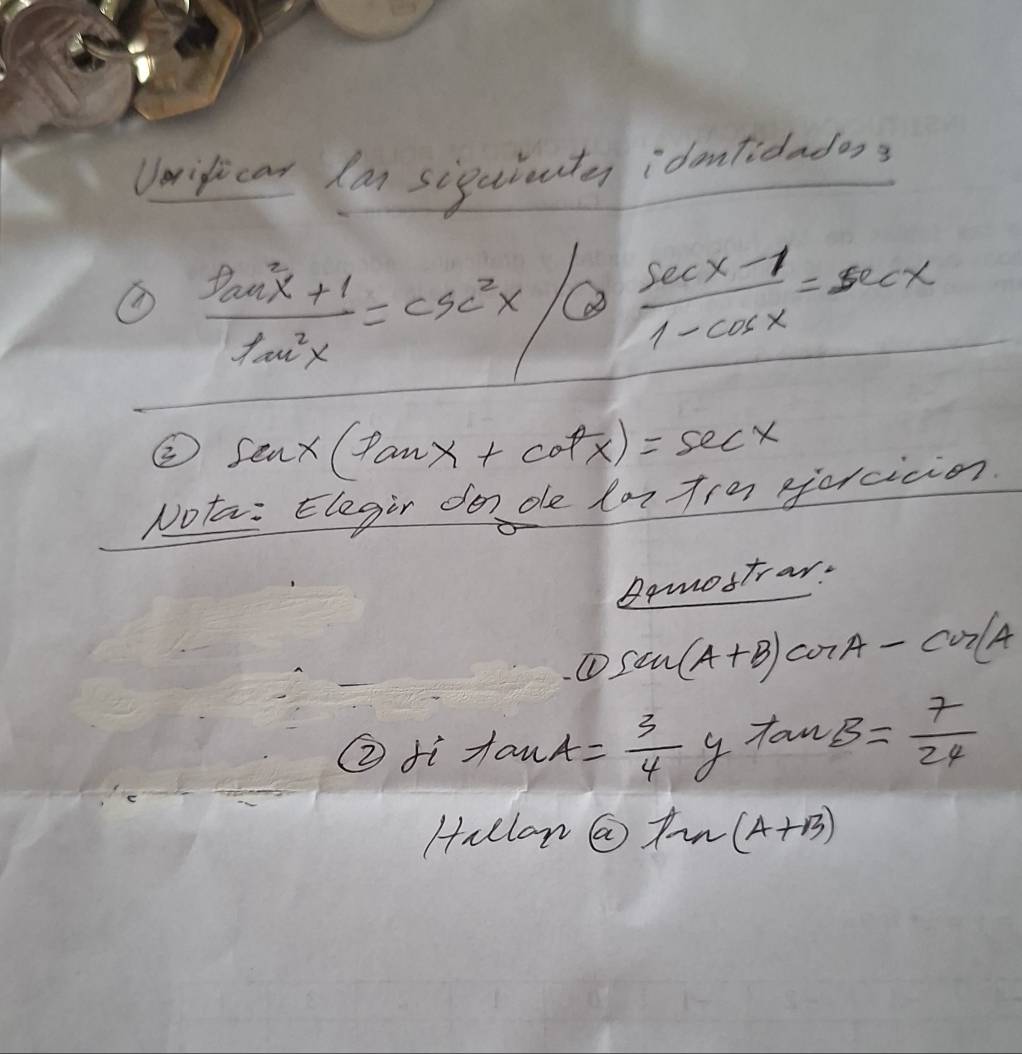 Verificar las siguientes identidades:
① (tan²x + 1)/(tan²x) = csc²x / ② (sec x - 1)/(1 - cos x) = sec x
③ sen x (tan x + cot x) = sec x
Nota: Elegir dos de los tres ejercicios.
Demostrar:
① sen(A+B) cos A - cos(A
② si tan A = 3/4 y tan B = 7/24
Hallar ⓐ tan (A+B)